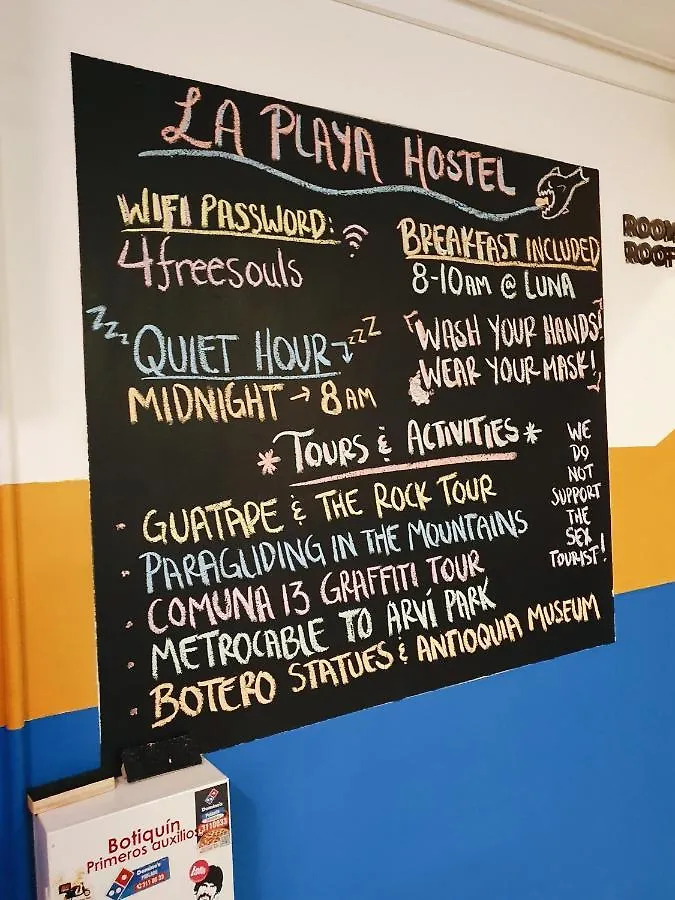 LA PLAYA HOSTEL
WIFI PASSWORD:
4freesouls
BREAKFAST INCLUDED
8-10AM @ LUNA
zzz
QUIET HOUR
zzz
MIDNIGHT → 8AM
WASH YOUR HANDS!
WEAR YOUR MASK!
* TOURS & ACTIVITIES *
· GUATAPE & THE ROCK TOUR
· PARAGLIDING IN THE MOUNTAINS
· COMUNA 13 GRAFFITI TOUR
· METROCABLE TO ARVÍ PARK
· BOTERO STATUES & ANTIOQUIA MUSEUM
WE
DO
NOT
SUPPORT
THE
SEX
TOURIST!
ROOM
ROOF
Botiquín
Primeros auxilios
Domino's
Domino's